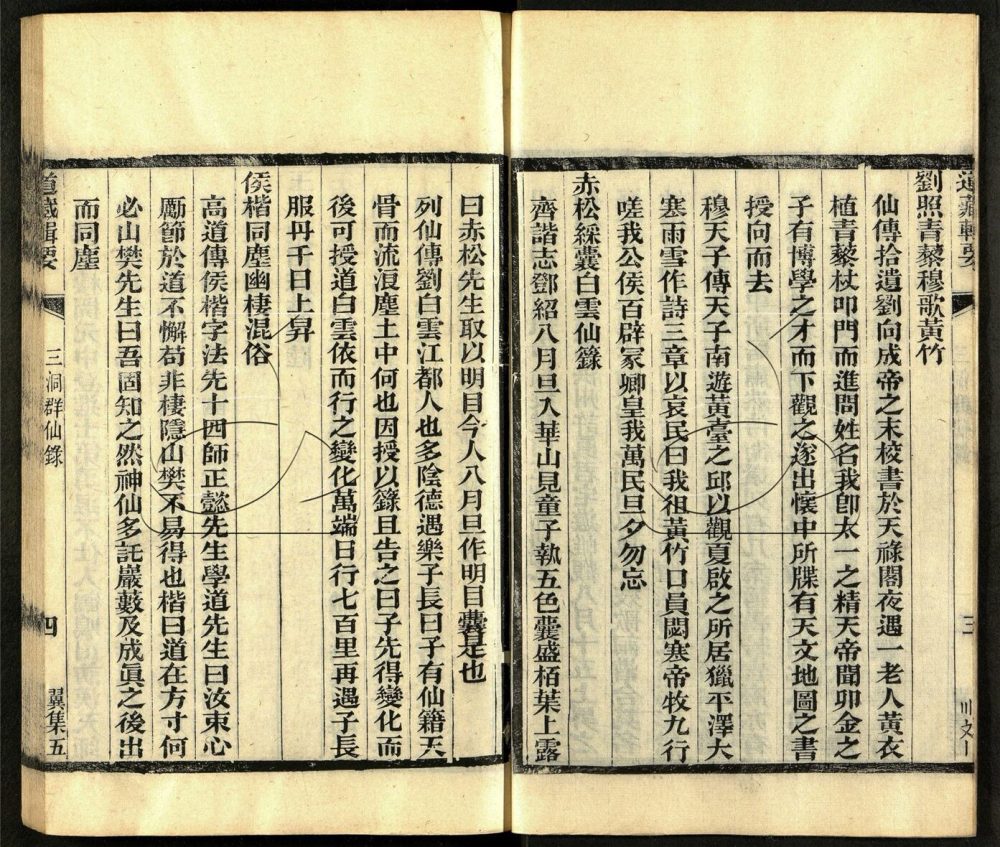 劉照青藜穆歌黃竹
仙傳拾遺劉向成帝之末校書於天祿閣夜遇一老人黃衣
植青藜杖叩門而進問姓名我卽太一之精天帝聞卯金之
子有博學之才而下觀之遂出懷中所牒有天文地圖之書
授向而去
穆天子傳天子南遊黃臺之邱以觀夏啟之所居獵平澤大
寒雨雪作詩三章以哀民曰我徂黃竹口員閟寒帝牧九行
嗟我公侯百辟家卿皇我萬民旦夕勿忘
赤松綵囊白雲仙籙
齊諧志鄧紹八月旦入華山見童子執五色囊盛栢葉上露
曰赤松先生取以明目今人八月旦作明目囊是也
列仙傳劉白雲江都人也多陰德遇樂子長曰子有仙籍天
骨而流浪塵土中何也因授以籙且告之曰子先得變化而
後可授道白雲依而行之變化萬端日行七百里再遇子長
服丹千日上昇
侯楷同塵幽棲混俗
高道傳侯楷字法先十四師正懿先生學道先生曰汝束心
勵節於道不懈苟非棲隱山樊不易得也楷曰道在方寸何
必山樊先生曰吾固知之然神仙多託巖藪及成眞之後出
而同塵
道藏輯要
三洞群仙錄
四
翼集五